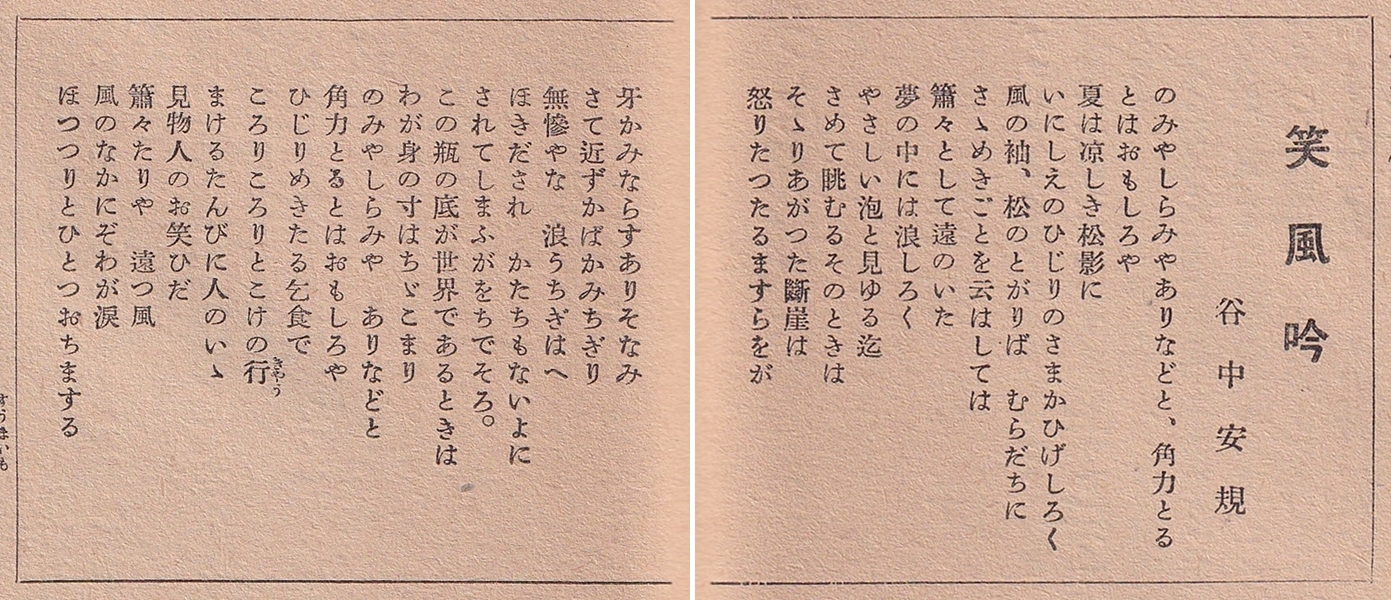 笑風吟
谷中安規
のみやしらみやありなどと、角力とる
とはおもしろや
夏は凉しき松影に
いにしえのひじりのさまかひげしろく
風の袖、松のとがりば　むらだちに
さゝめきごとを云はしては
簫々として遠のいた
夢の中には浪しろく
やさしい泡と見ゆる迄
さめて眺むるそのときは
そゝりあがつた斷崖は
怒りたつたるますらをが
牙かみならすありそなみ
さて近ずかばかみちぎり
無慘やな　浪うちぎはへ
ほきだされ　かたちもないよに
されてしまふがをちでそろ。
この瓶の底が世界であるときは
わが身の寸はちゞこまり
のみやしらみや　ありなどと
角力とるとはおもしろや
ひじりめきたる乞食で
ころりころりとこけの行
きやう
まけるたんびに人のいゝ
見物人のお笑ひだ
簫々たりや　遠つ風
風のなかにぞわが涙
ほつつりとひとつおちまする